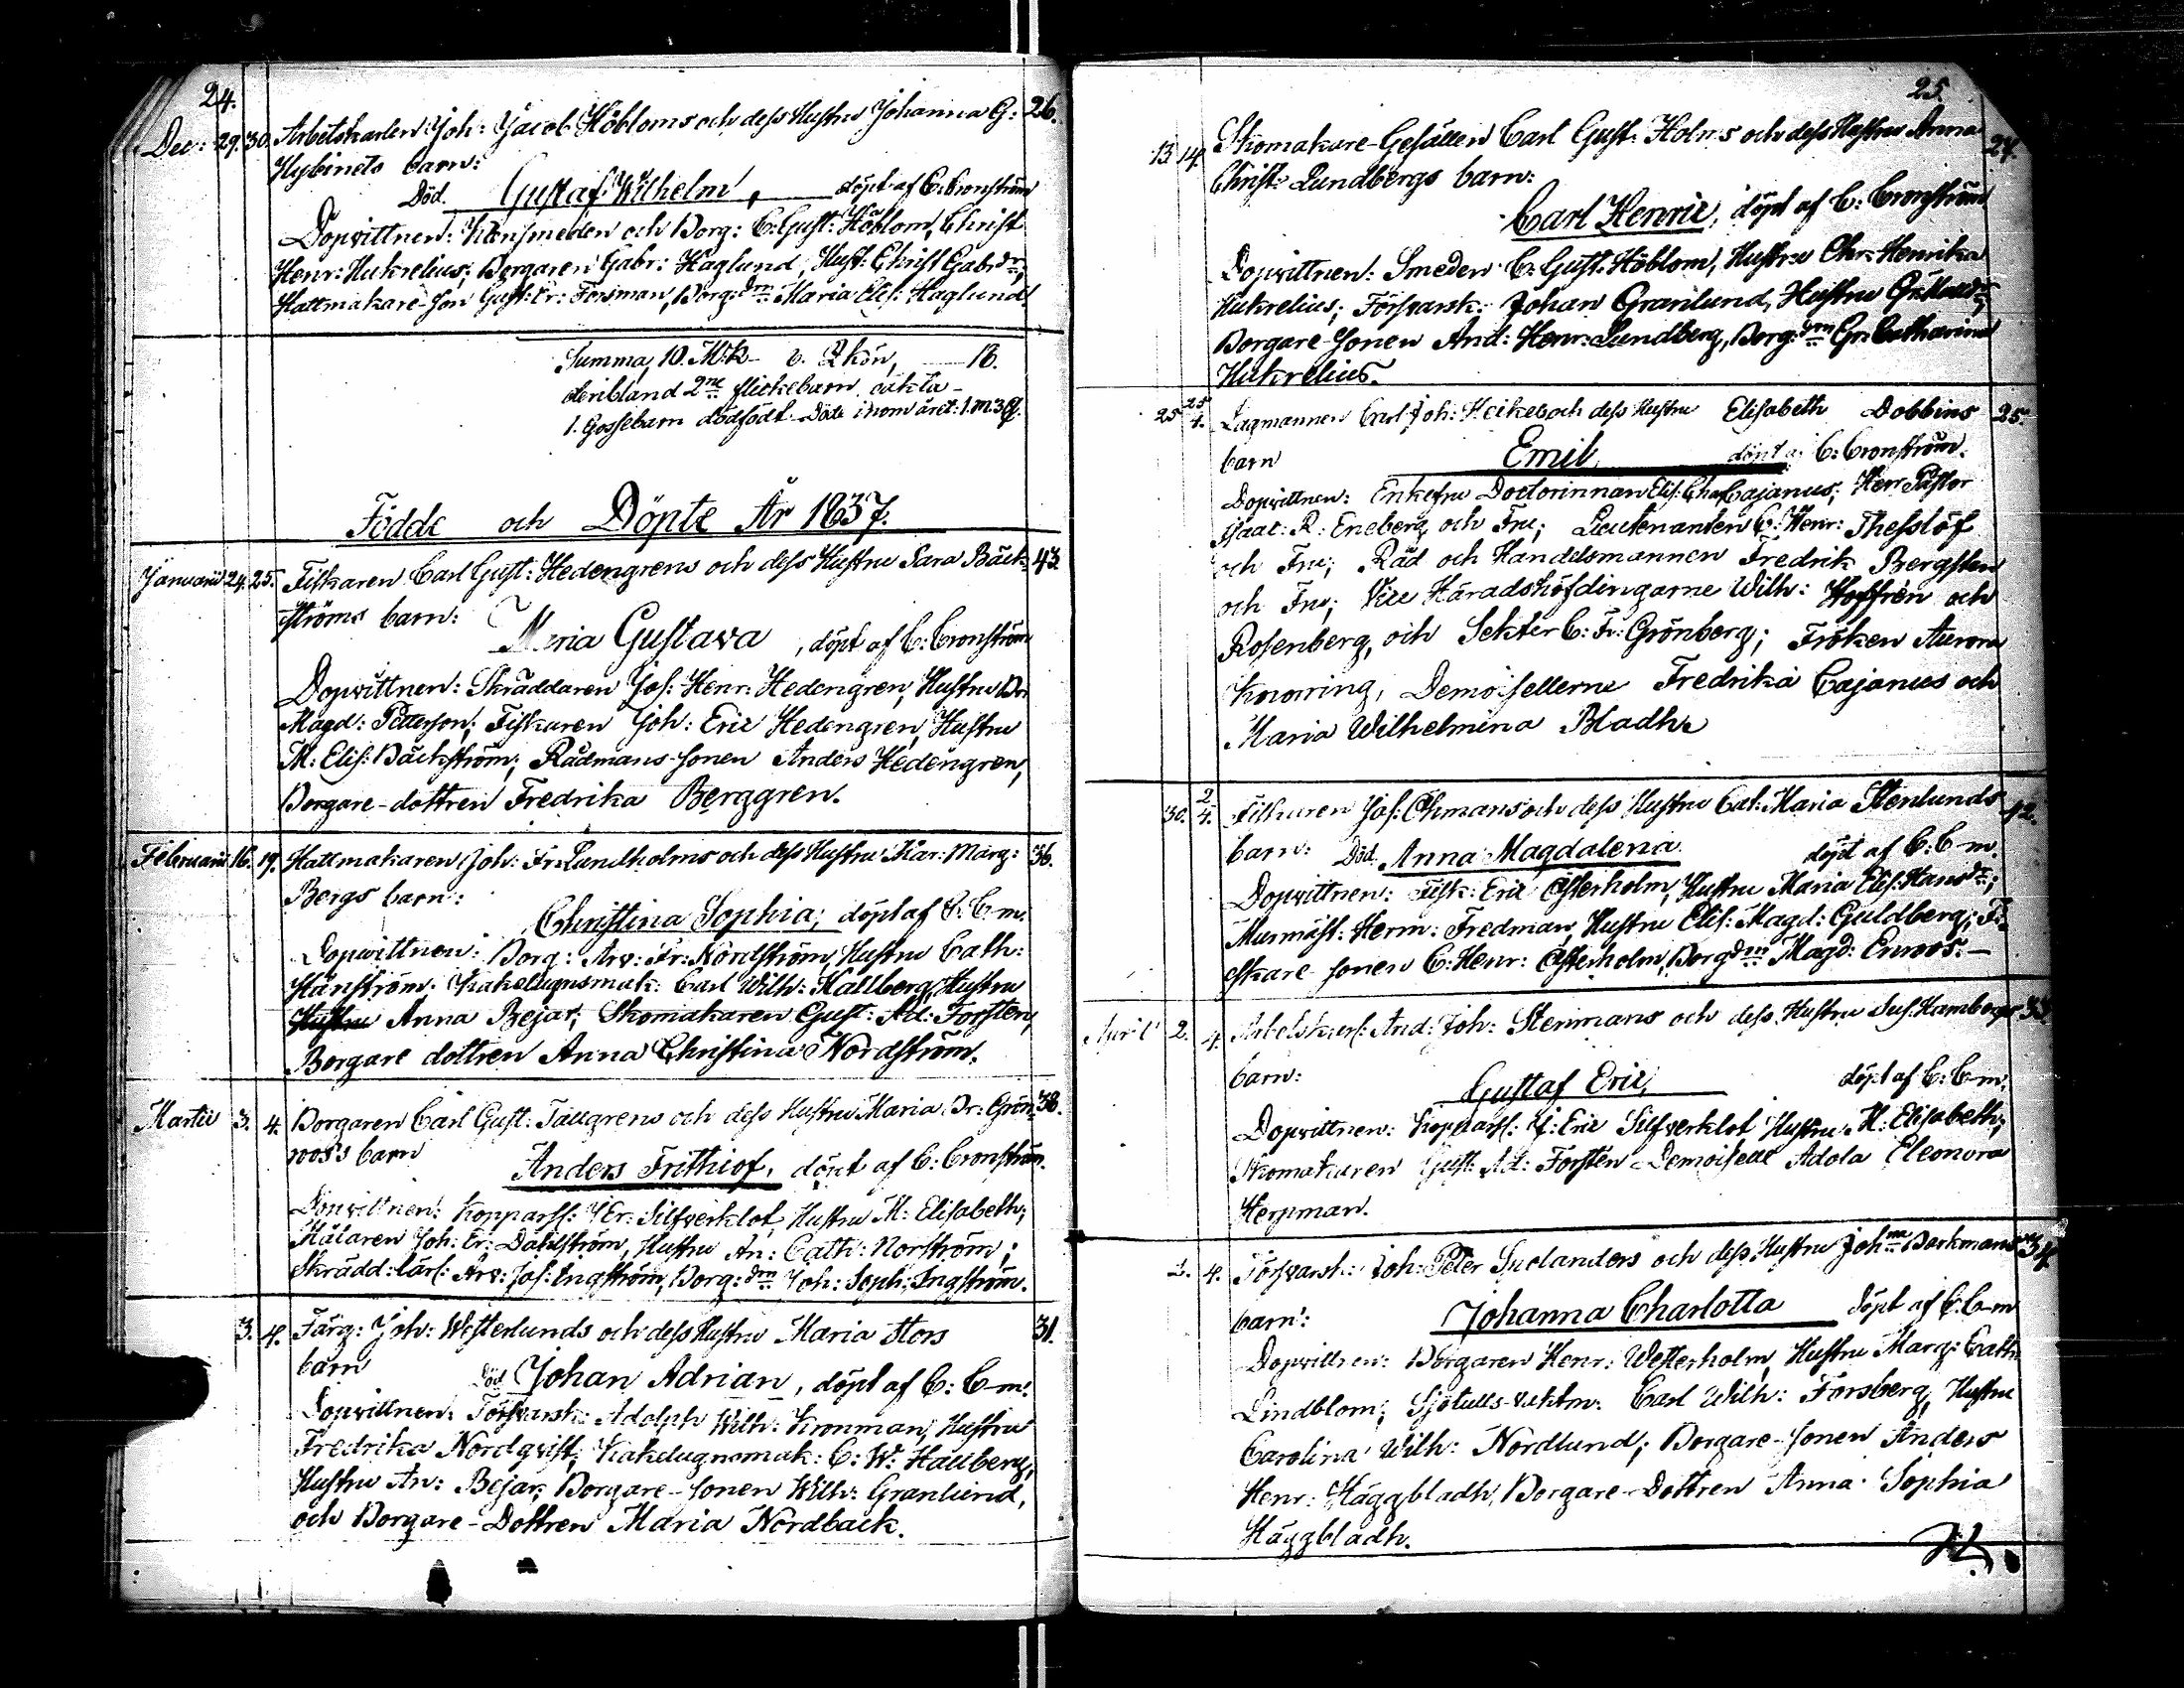 24.
Dec: 29. 30. Arbetskarlen Joh: Jacob Höbloms och dess Hustru Johanna G: 26.
Hybinets barn:
Död. Gustaf Wilhelm, döpt af C: Cronström
Dopvittnen: Klensmeden och Borg: C: Gust: Höblom, Christ
Henr: Hukrelius; Borgaren Gabr: Haglund, Hust: Christ Gabr dr;
Hattmakare-son Gust: Er: Forsman, Borg: dm Maria Elis: Haglund.
Summa, 10. M:k 8. Qkön, 18.
deribland 2ne flickebarn oäkta
1. Gossebarn dödfödt. Döde inom året: 1. m. 3 Q.
Födde och Döpte År 1837.
Januarii 24. 25. Fiskaren Carl Gust: Hedengrens och dess Hustru Sara Bäck- 43.
ströms barn:
Maria Gustava, döpt af C: Cronström
Dopvittnen: Skräddaren Jos: Henr: Hedengren, Hustru Br:
Magd: Petterson; Fiskaren Joh: Eric Hedengren, Hustru
M: Elis: Bäckström; Rådmans-sonen Anders Hedengren,
Borgare-dottren Fredrika Berggren.
Februarii 16. 19. Hattmakaren Joh: Fr: Lundholms och dess Hustru Kar: Marg: 36.
Bergs barn:
Christina Sophia; döpt af C: C-m.
Dopvittnen: Borg: Arv: Fr: Nordström, Hustru Cath:
Hänström; Kakelugnsmak: Carl Wilh: Hallberg, Hustru
Hustru Anna Bejar; Skomakaren Gust: Ad: Forsten,
Borgare dottren Anna Christina Nordström.
Martii 3. 4. Borgaren Carl Gust: Tallgrens och dess Hustru Maria Br: Grön- 38.
roos's barn
Anders Frithiof, döpt af C: Cronström.
Dopvittnen: Kopparsl: J: Er: Silfverklot, Hustru M: Elisabeth;
Målaren Joh: Er: Dahlström, Hustru An: Cath: Norström;
Skrädd: lärl: Arv: Jos: Engström, Borg: dm Joh: Soph: Engström.
3. 4. Färg: Joh: Westerlunds och dess Hustru Maria Stors 31.
barn
Död Johan Adrian, döpt af C: C-m.
Dopvittnen: Försvarsk: Adolph Wilh: Kronman, Hustru
Fredrika Nordqvist; Kakelugnsmak: C: W: Hallberg,
Hustru An: Bejar; Borgare-sonen Wilh: Granlund,
och Borgare-Dottren Maria Nordback.
25.
13 14. Skomakare-Gesällen Carl Gust: Holms och dess Hustru Anna 27.
Christ: Lundbergs barn:
Carl Henric, döpt af C: Cronström
Dopvittnen: Smeden C: Gust: Höblom, Hustru Chr: Henrika
Hukrelius; Försvarsk: Johan Granlund, Hustru
Borgare-Sonen And: Henr: Lundberg, Borg: dm Gr: Catharina
Hukrelius.
25 25/4. Lagmannen Carl Joh: Heikels och dess Hustru Elisabeth Dobbins 25.
barn Emil döpt af C: Cronström.
Dopvittnen: Enkefru Doctorinnan Elis: Char: Cajanus; Herr Pastor
Isaac: R: Eneberg och Fru; Lieutenanten C: Henr: Thesslöf
och Fru; Råd och Handelsmannen Fredrik Bergsten
och Fru; Vice Häradshöfdingarne Wilh: Hoffrén och
Rosenberg, och Sekter C: Fr: Grönberg; Fröken Aurora
Knorring, Demoisellerne Fredrika Cajanus och
Maria Wilhelmina Bladh.
30. 2/4. Fiskaren Jos: Öhmans och dess Hustru Cat: Maria Stenlunds 42.
barn: Död. Anna Magdalena döpt af C: C-m.
Dopvittnen: Fisk: Eric Österholm, Hustru Maria Elis: Hans dr;
Murmäst: Herm: Fredman, Hustru Elis: Magd: Guldberg; Fi-
skare-sonen C: Henr: Österholm, Borg dm Magd: Enroos.
April 2. 4. Arbetskarl: And: Joh: Stenmans och dess Hustru Sus: Hambergs 33.
barn:
Gustaf Eric, döpt af C: C-m.
Dopvittnen: Kopparsl: J: Eric Silfverklot Hustru M: Elisabeth;
Skomakaren Gust: Ad: Forsten Demoiselle Adola Eleonora
Herpman.
2. 4. Försvarsk: Joh: Peter Snolanders och dess Hustru Johna Borkmans 34.
barn: Johanna Charlotta döpt af C: C-m
Dopvittnen: Borgaren Henr: Westerholm, Hustru Marg: Cath:
Lindblom; Sjötulls-vaktm: Carl Wilh: Forsberg, Hustru
Carolina Wilh: Nordlund; Borgare-Sonen Anders
Henr: Häggbladh, Borgare-Dottren Anna Sophia
Häggbladh.